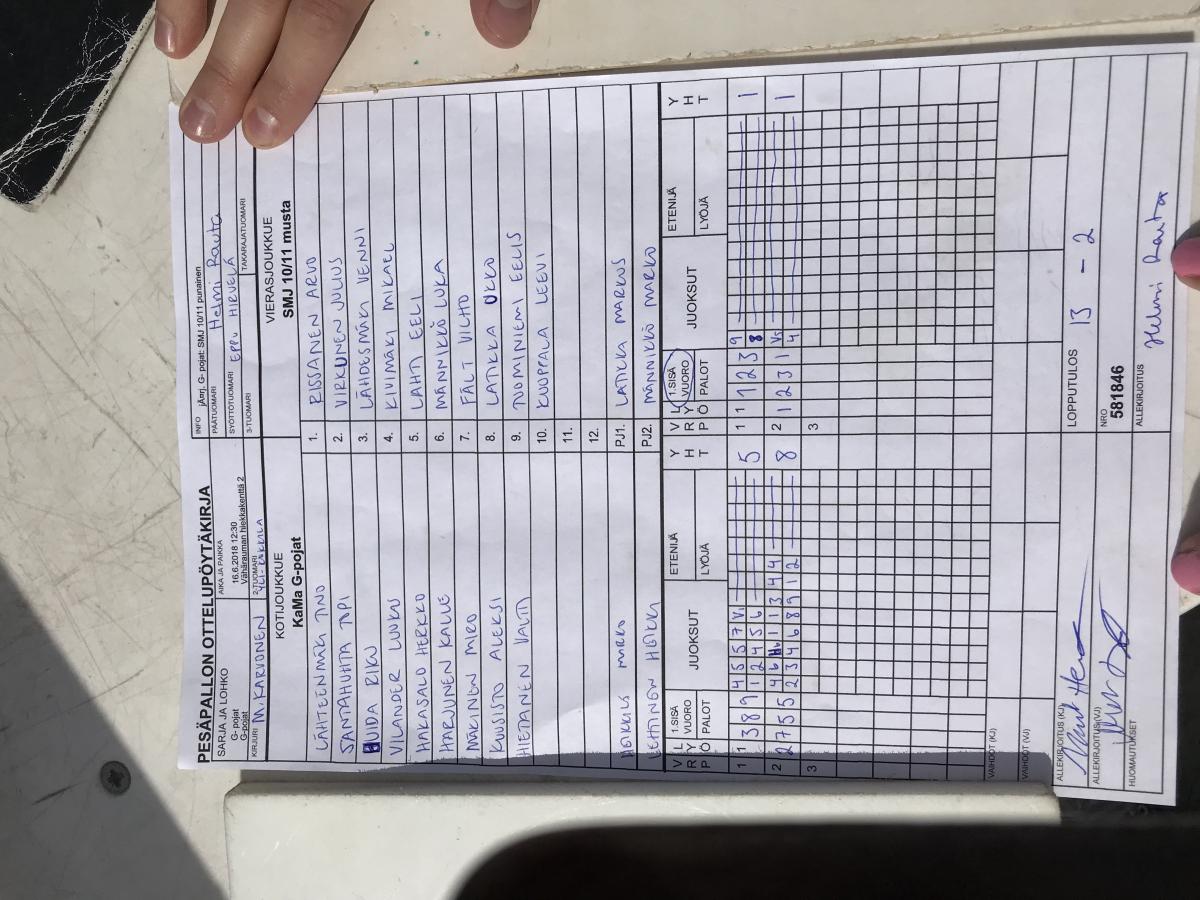 PESÄPALLON OTTELUPÖYTÄKIRJA
INFO jÄrrj. G- pojat: SMJ 10/11 punainen
SARJA JA LOHKO
G- pojat
G-pojat
AIKA JA PAIKKA
16.6.2018 12:30
Vähärauman hiekkakenttä 2
PÄÄTUOMARI Helmi Rauta
SYÖTTÖTUOMARI EPPU HIRVELÄ
KIRJURI M. KARVONEN
2-TUOMARI YLI-KÄKKILÄ
3-TUOMARI
TAKARAJATUOMARI
KOTIJOUKKUE
KaMa G-pojat
VIERASJOUKKUE
SMJ 10/11 musta
LÄHTEENMÄKI TINO 1. RISSANEN ARVO
SANTAHUHTA TOPI 2. VIRKUNEN JULIUS
UIDA RIKU 3. LÄHDESMÄKI VENNI
VILANDER LUUKU 4. KIVIMÄKI MIKAEL
HAKASALO HERKKO 5. LAHTI EELI
HARJUNEN KALLE 6. MÄNNIKKÖ LUKA
MÄKINEN MIRO 7. FÄLT VILHO
KUUSISTO ALEKSI 8. LATIKKA UKKO
HIETANEN VALTTI 9. TUOMINIEMI EELIS
10. KUOPPALA LEEVI
11.
12.
HEIKKILÄ MARKO PJ1. LATIKKA MARKUS
LEHTINEN HEIKKI PJ2. MÄNNIKKÖ MARKO
V L R Y P Ö 1.SISÄ VUORO PALOT JUOKSUT ETENIJÄ LYÖJÄ Y H T
V L R Y P Ö 1.SISÄ VUORO PALOT JUOKSUT ETENIJÄ LYÖJÄ Y H T
1 1 3 8 9 4 5 5 7 V1 5
1 2 4 5 6
1 1 1 2 3 9 1
8
2 2 7 5 5 4 6 1 1 3 4 4 8
2 3 4 6 8 9 1 2
2 1 2 3 1 1
4
3
3
VAIHDOT (KJ)
VAIHDOT (VJ)
ALLEKIRJOITUS (KJ)
LOPPUTULOS 13 - 2
ALLEKIRJOITUS(VJ)
NRO
581846
HUOMAUTUKSET
ALLEKIRJOITUS Helmi Rauta